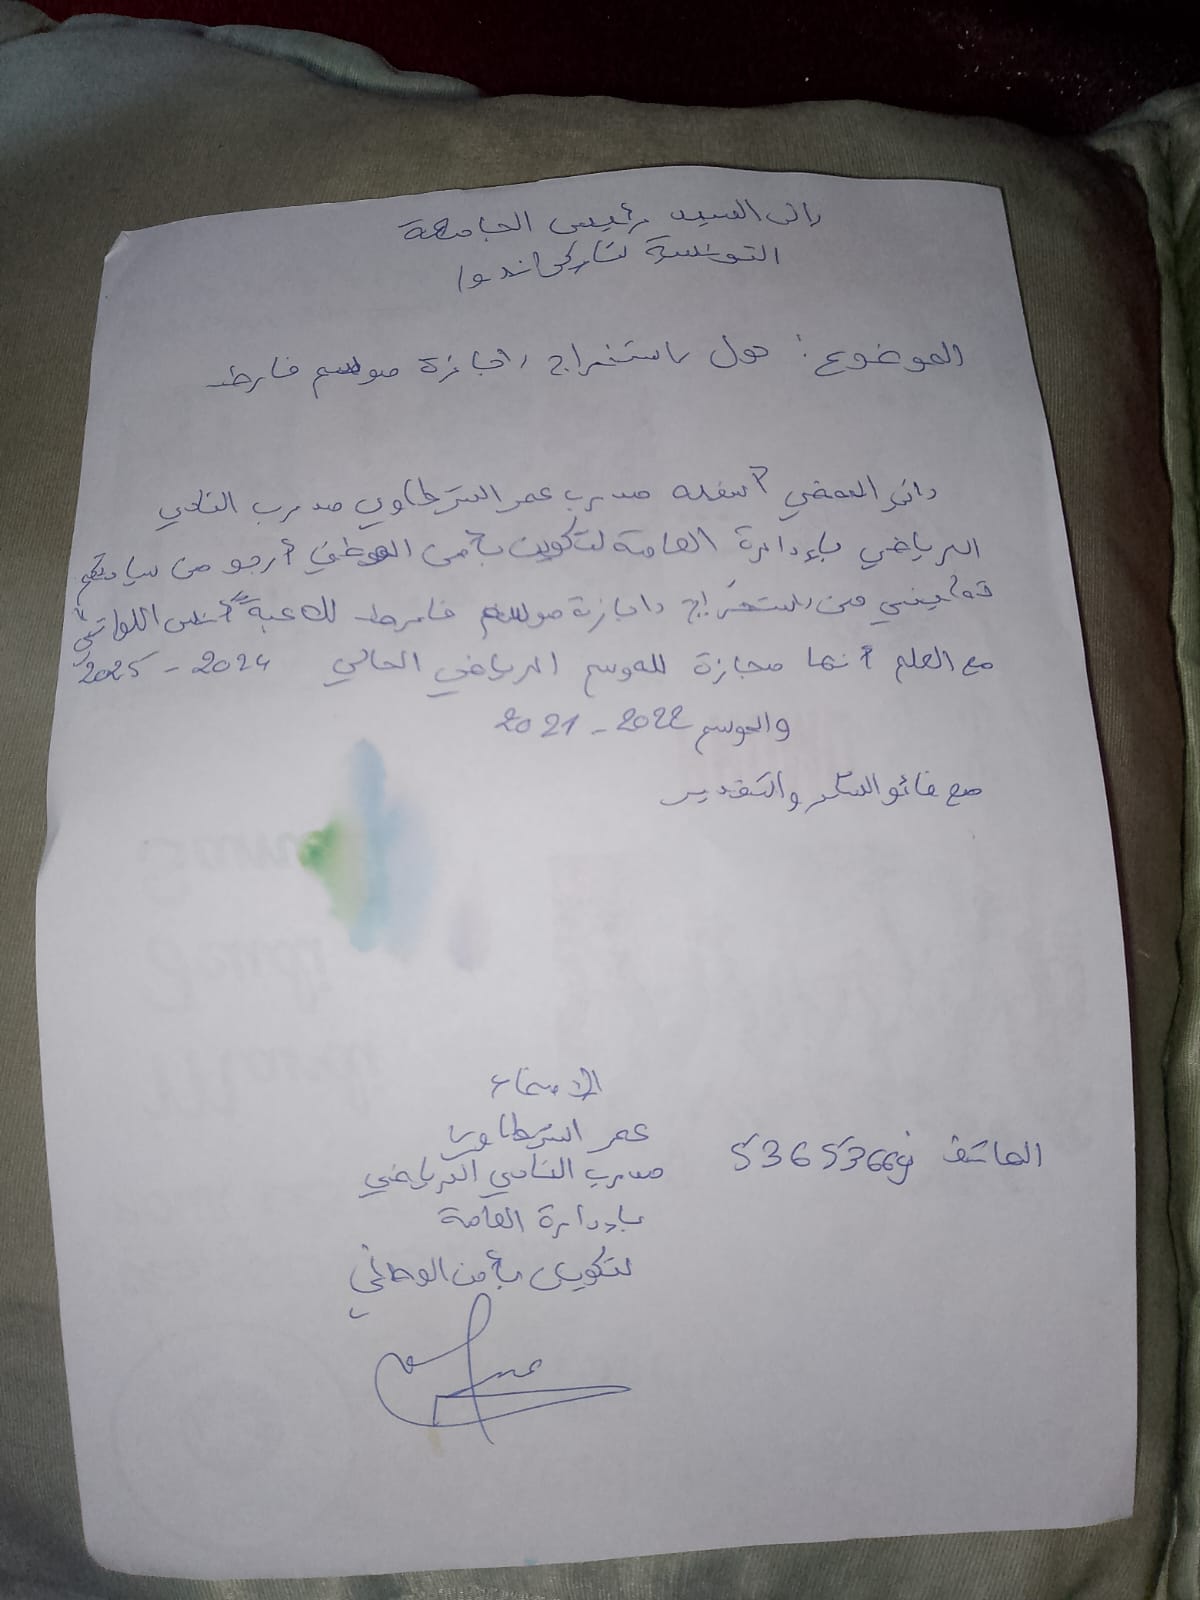 إلى السيد رئيس الجامعة
التونسية لتايكواندوا
الموضوع: حول استخراج إجازة موسم فارط
إني الممضي أسفله مدرب عمر الشرطاوي مدرب النادي
الرياضي بإدارة العامة لتكوين بأمن الوطني أرجو من سيادتكم
تمكيني من استخراج إجازة موسم فارط للاعبة "أنس اللواتي"
مع العلم أنها مجازة للموسم الرياضي الحالي 2024 - 2025
والموسم 2022 - 2021
مع فائق الشكر والتقدير
الامضاء
عمر الشرطاوي
مدرب النادي الرياضي
بإدارة العامة
لتكوين بأمن الوطني
الهاتف